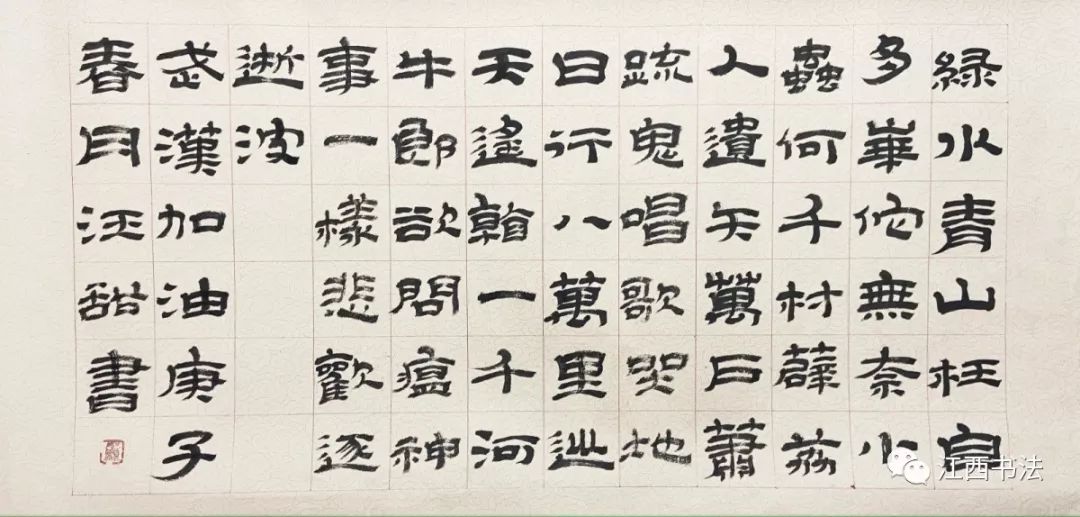 綠水青山枉自
多華佗無奈小
蟲何千村薜荔
人遺矢萬戶蕭
疏鬼唱歌坐地
日行八萬里巡
天遙看一千河
牛郎欲問瘟神
事一樣悲歡逐
逝波
武漢加油庚子
春月汪甜書
江西书法